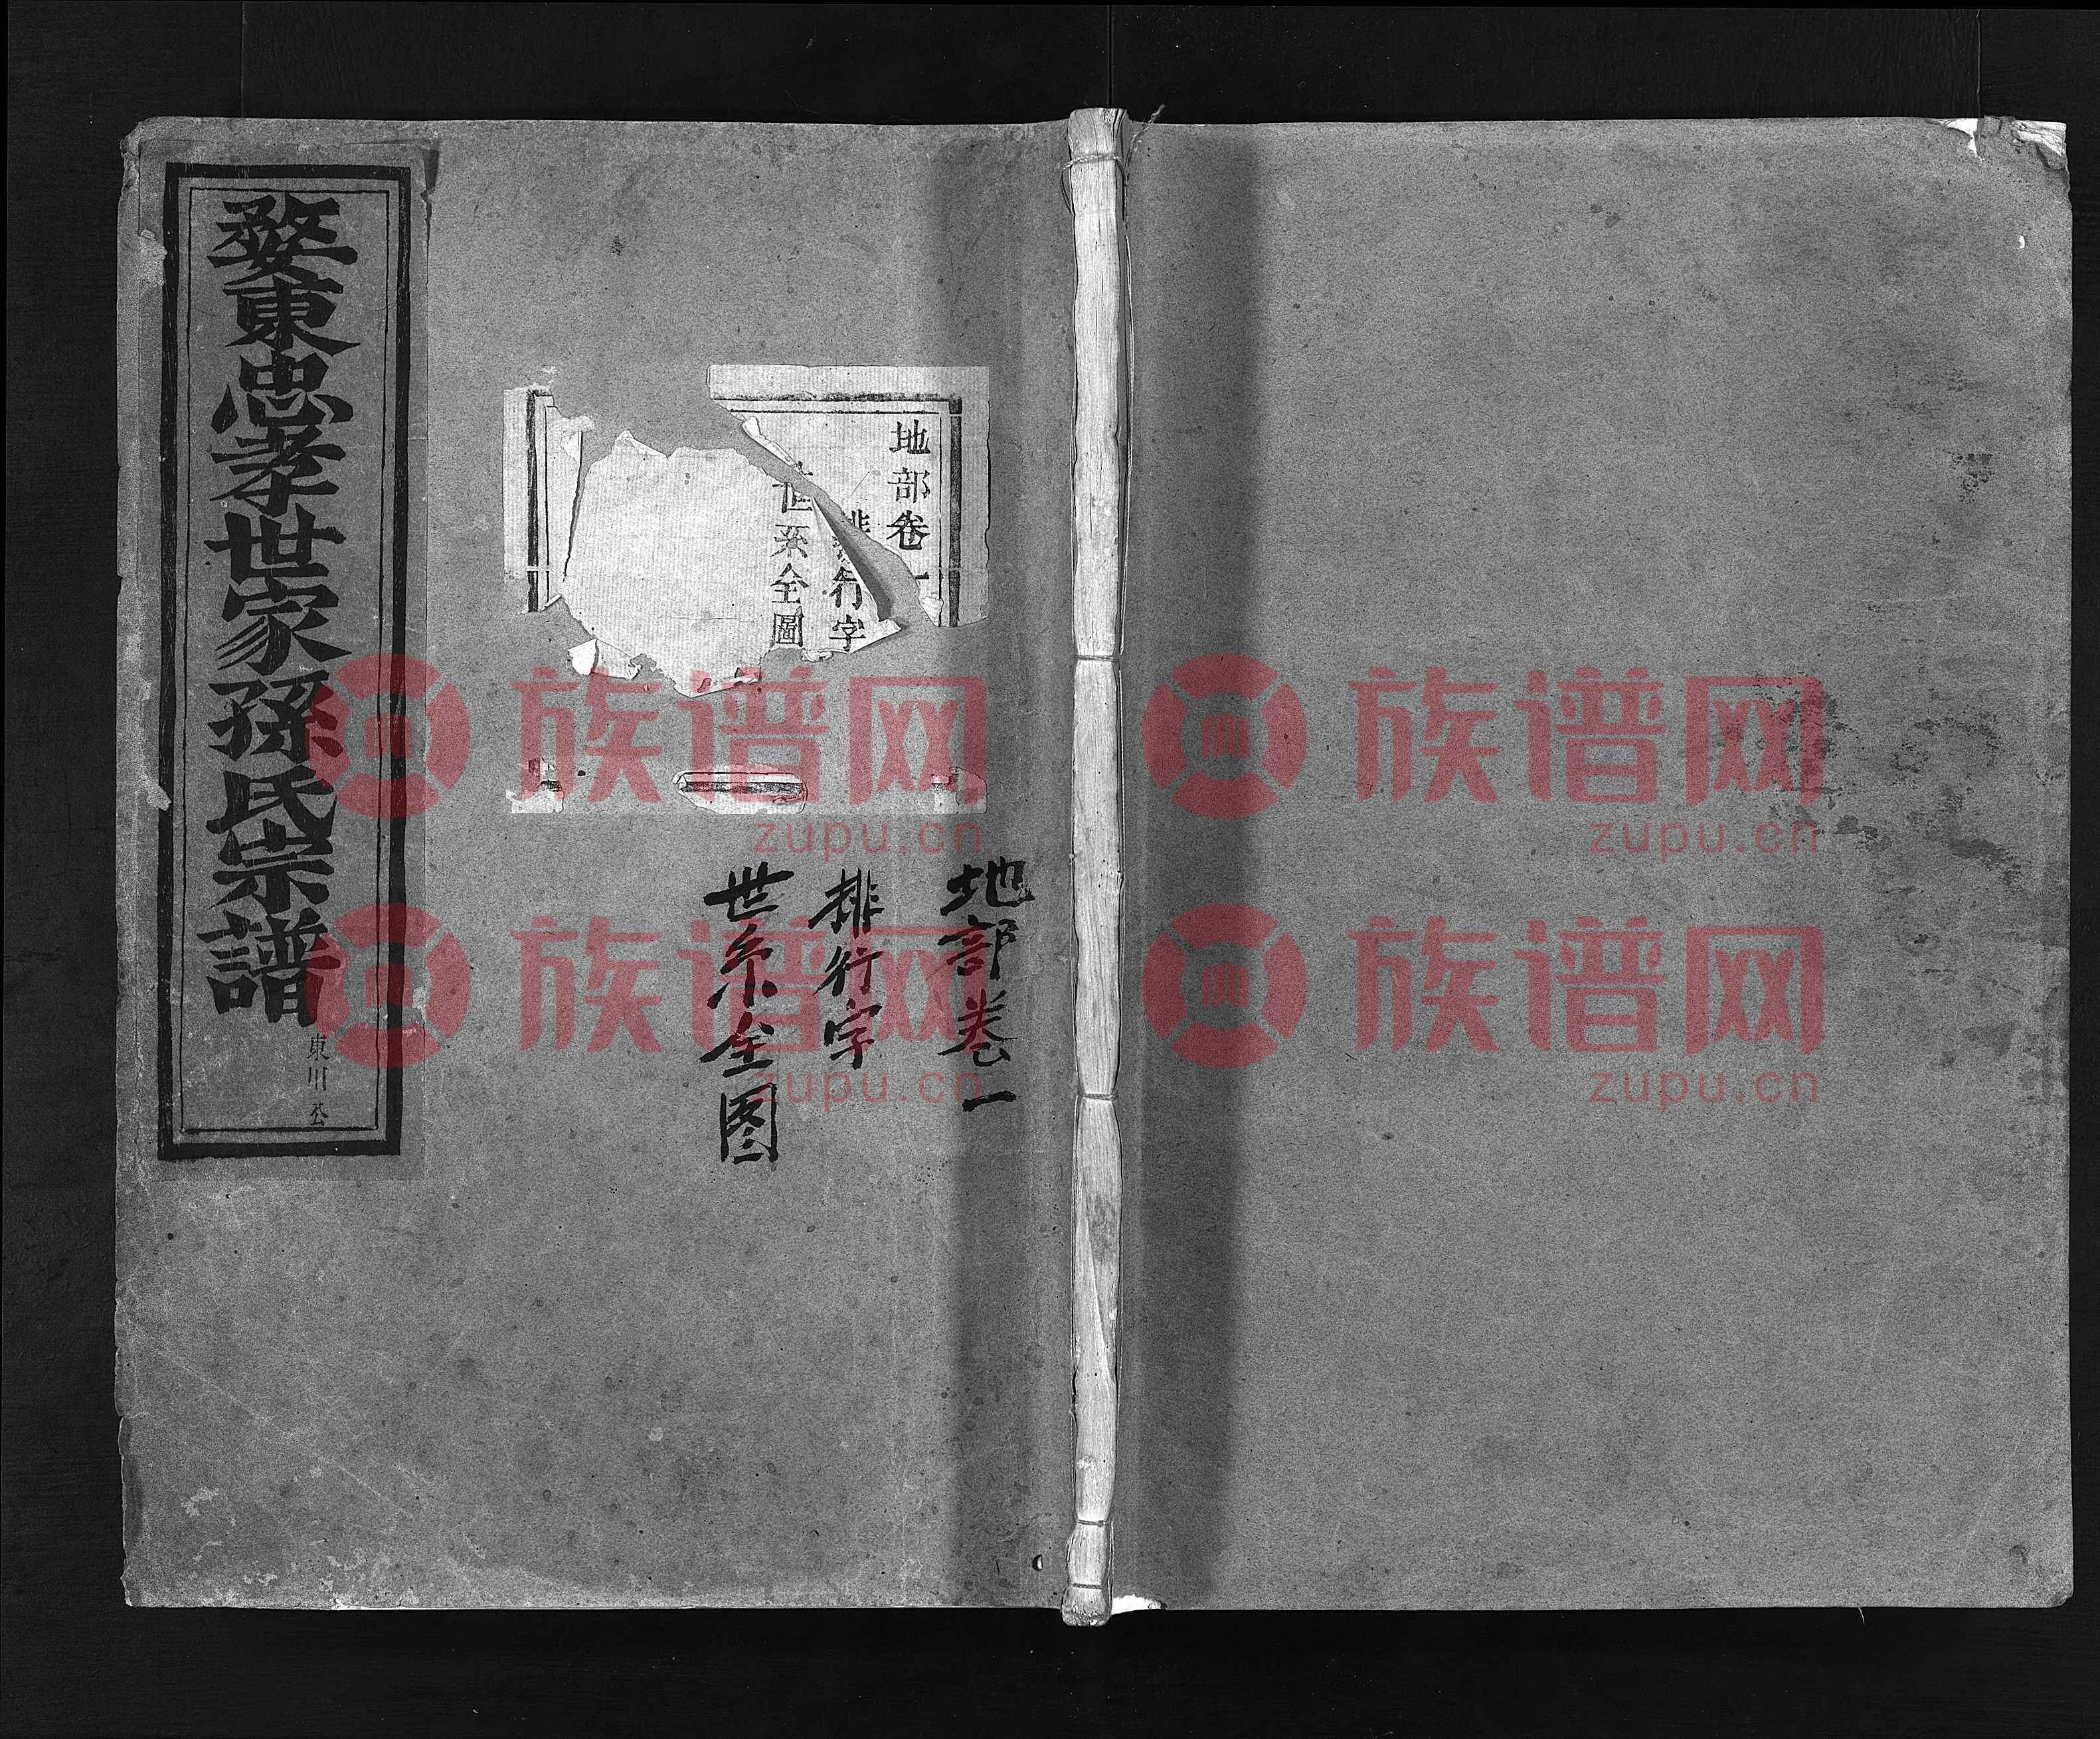 婺東忠孝世家孫氏宗譜
東川公
地部卷一
排行字
世系全圖
地部卷一
排行字
世系全图
族谱网
zupu.cn
族谱网
zupu.cn
族谱网
zupu.cn
族谱网
zupu.cn